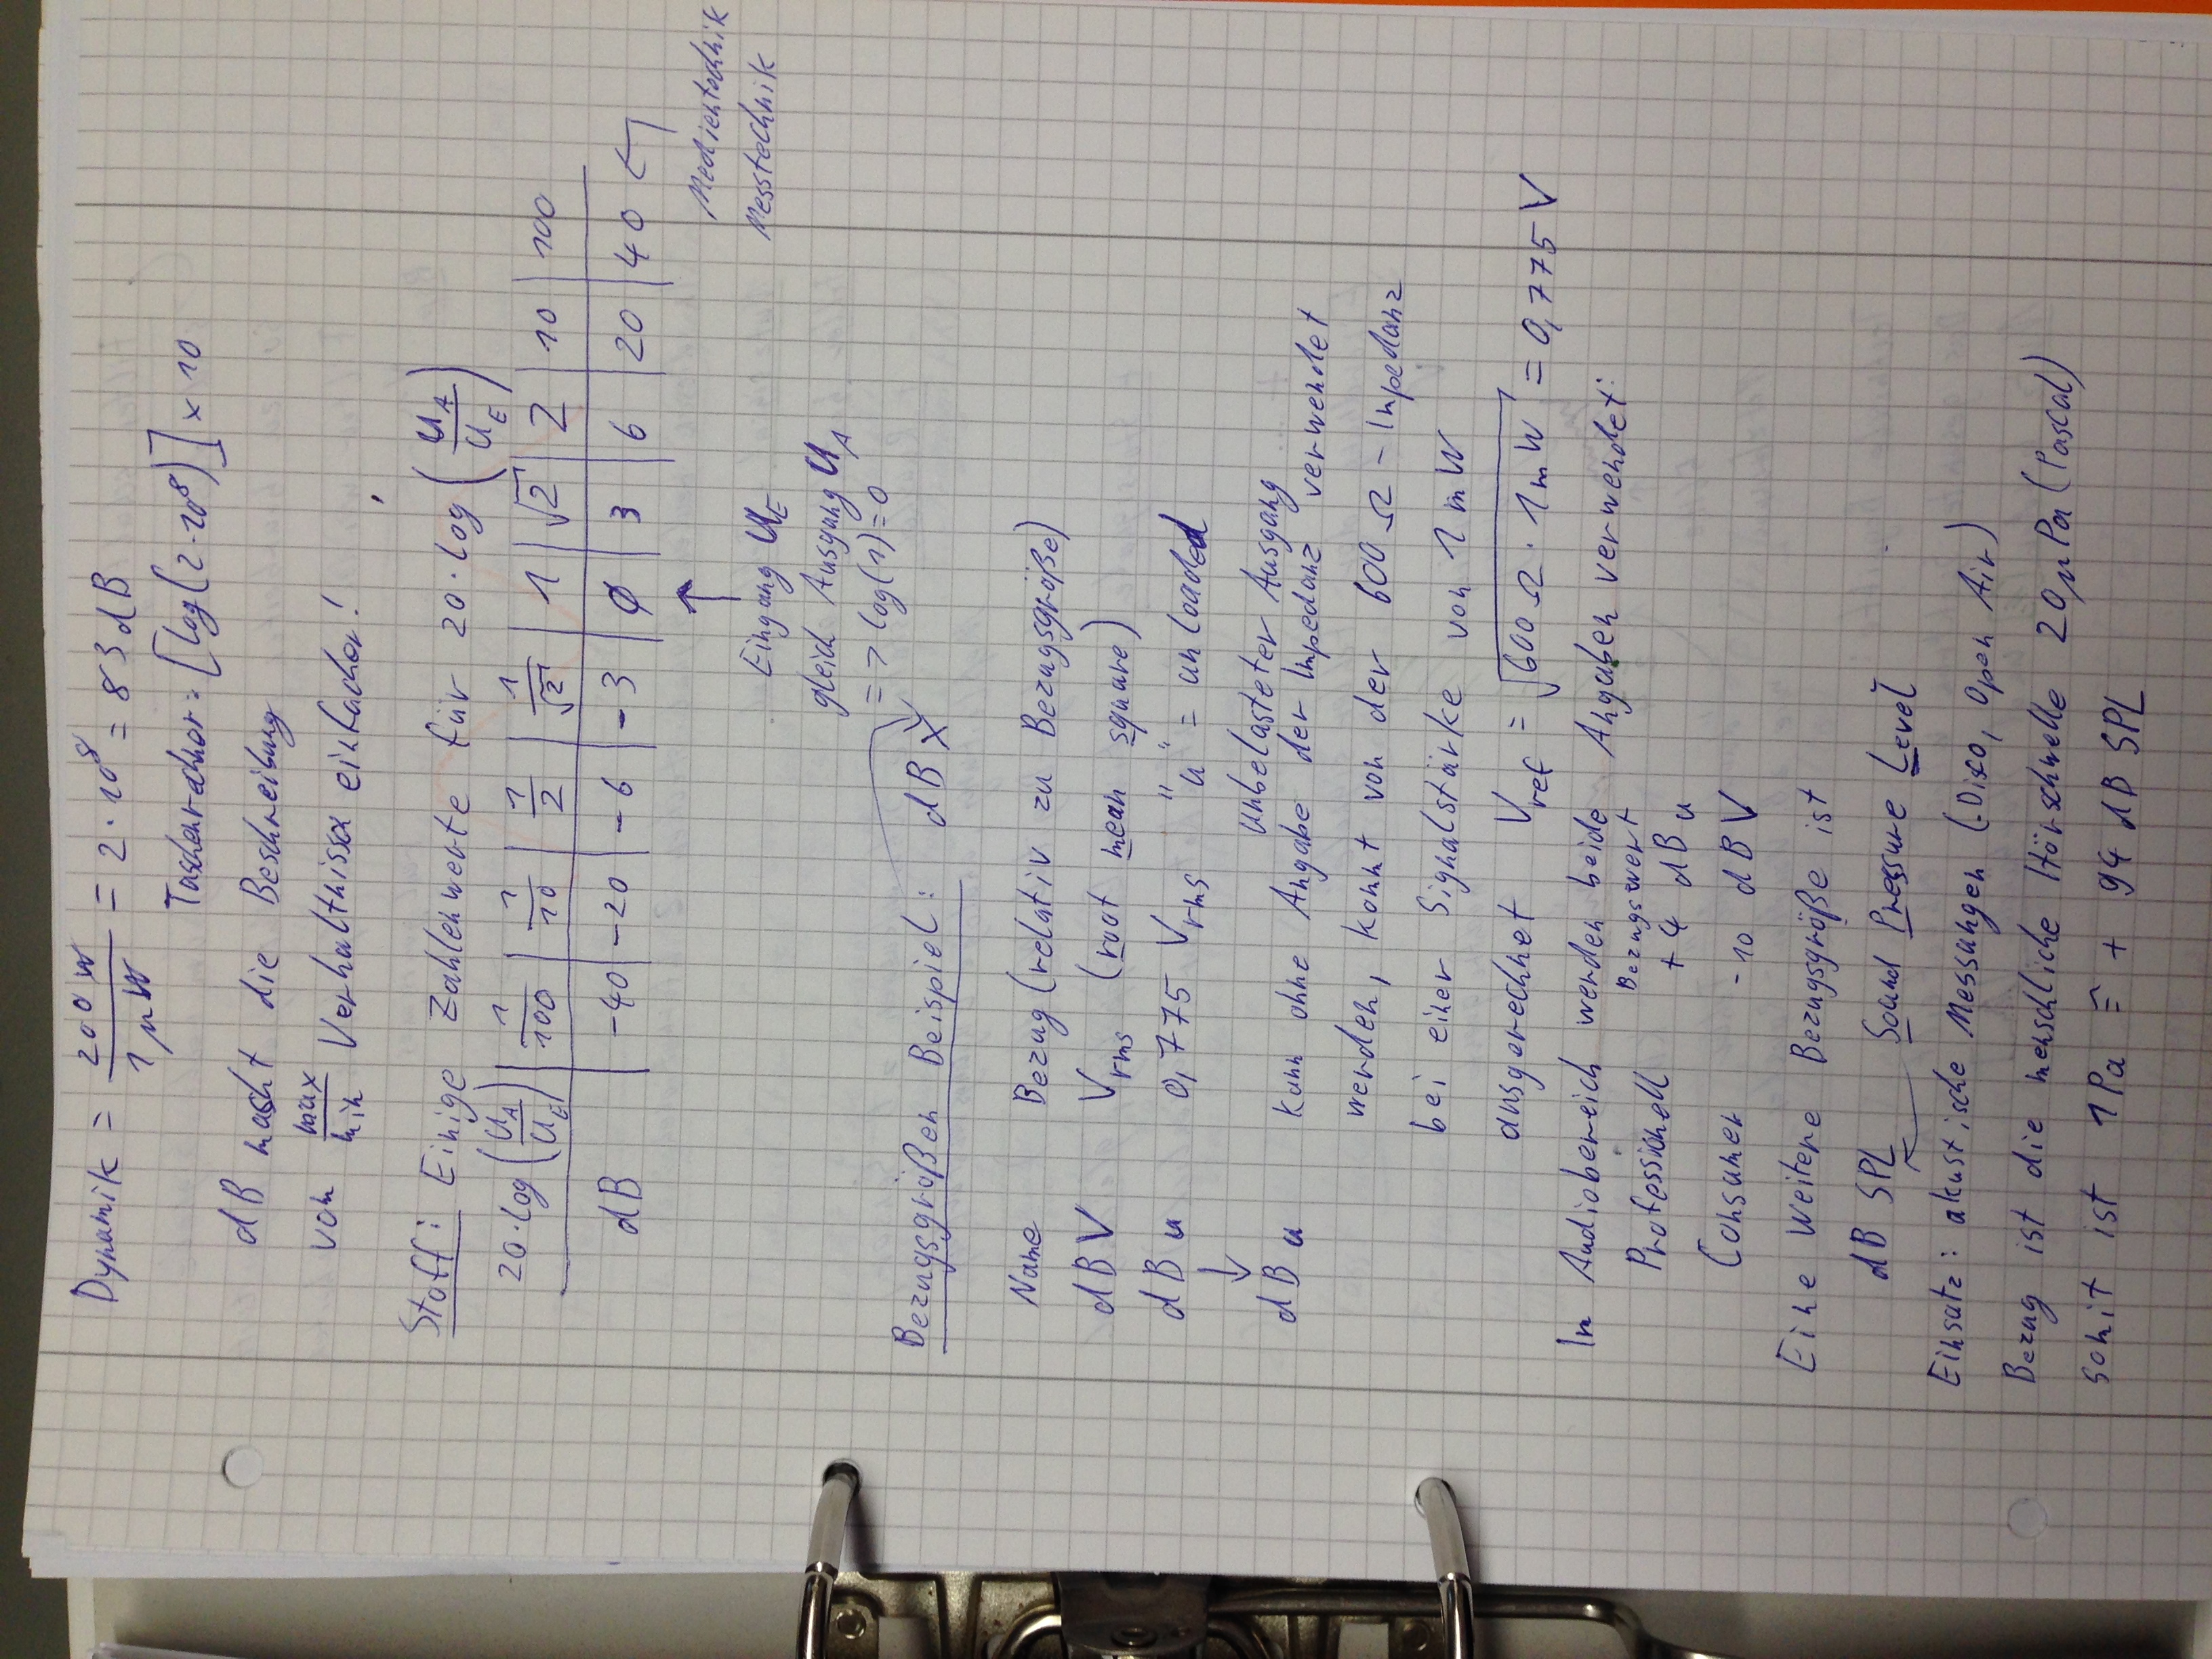 Dynamik = 200 W / 1 µW = 2 · 10⁸ = 83 dB
Taschenrechner: [log(2·10⁸)] × 10
dB macht die Beschreibung
von max/min Verhältnisse einfacher!
Stoff: Einige Zahlenwerte für 20 · log (U_A / U_E)
20 · log (U_A / U_E) | 1/100 | 1/10 | 1/2 | 1/√2 | 1 | √2 | 2 | 10 | 100
dB | -40 | -20 | -6 | -3 | 0 | 3 | 6 | 20 | 40 ←
Medientechnik
Messtechnik
↑
Eingang U_E
gleich Ausgang U_A
=> log(1) = 0
Bezugsgrößen Beispiel: dB X
Name Bezug (relativ zu Bezugsgröße)
dB V V_rms (root mean square)
dB u 0,775 V_rms "u" = unloaded
↓
unbelasteter Ausgang
dB u kann ohne Angabe der Impedanz verwendet
werden, kommt von der 600 Ω - Impedanz
bei einer Signalstärke von 1 mW
ausgerechnet V_ref = √(600 Ω · 1 mW) = 0,775 V
Im Audiobereich werden beide Angaben verwendet:
Bezugswert
Professionell +4 dB u
Consumer -10 dB V
Eine weitere Bezugsgröße ist
dB SPL ← Sound Pressure Level
Einsatz: akustische Messungen (Disco, Open Air)
Bezug ist die menschliche Hörschwelle 20 µPa (Pascal)
somit ist 1 Pa ≙ + 94 dB SPL